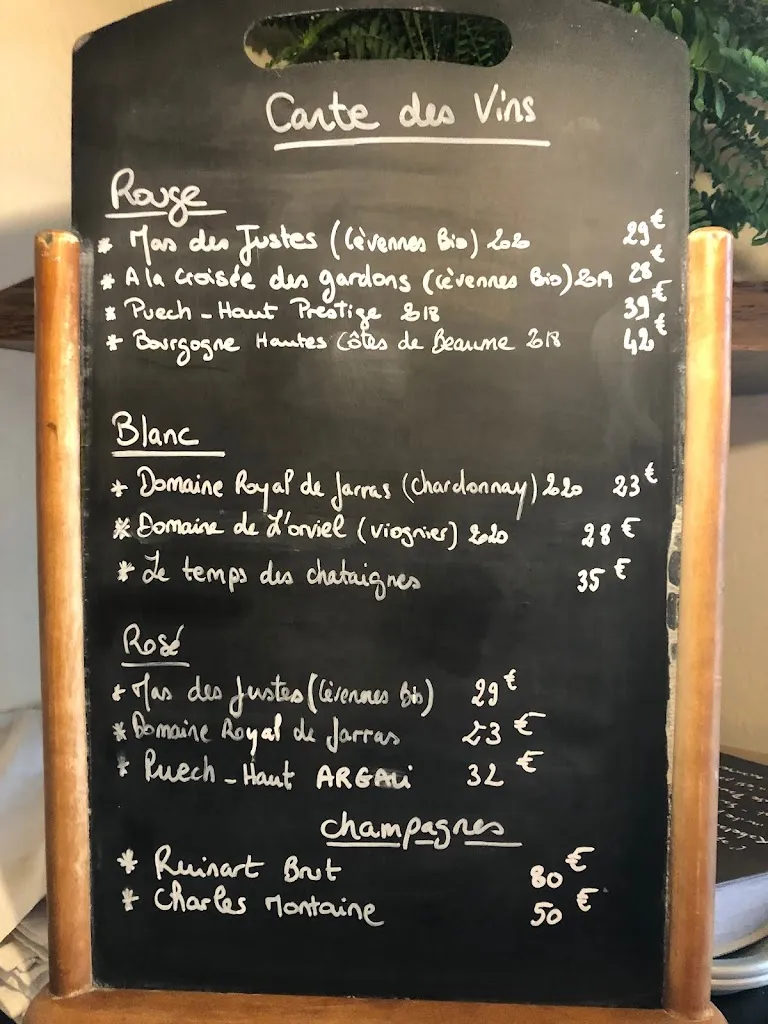 Carte des Vins
Rouge
* Mas des Justes (Cèvennes Bio) 2020 29€
* A la Croisée des gardons (cèvennes Bio) 2019 28€
* Puech-Haut Prestige 2018 39€
* Bourgogne Hautes Côtes de Beaume 2018 42€
Blanc
* Domaine Royal de Jarras (Chardonnay) 2020 23€
* Domaine de L'orviel (viognier) 2020 28€
* Le temps des chataignes 35€
Rosé
* Mas des Justes (Cèvennes Bio) 29€
* Domaine Royal de Jarras 23€
* Puech-Haut ARGALi 32€
champagnes
* Ruinart Brut 80€
* Charles Montaine 50€